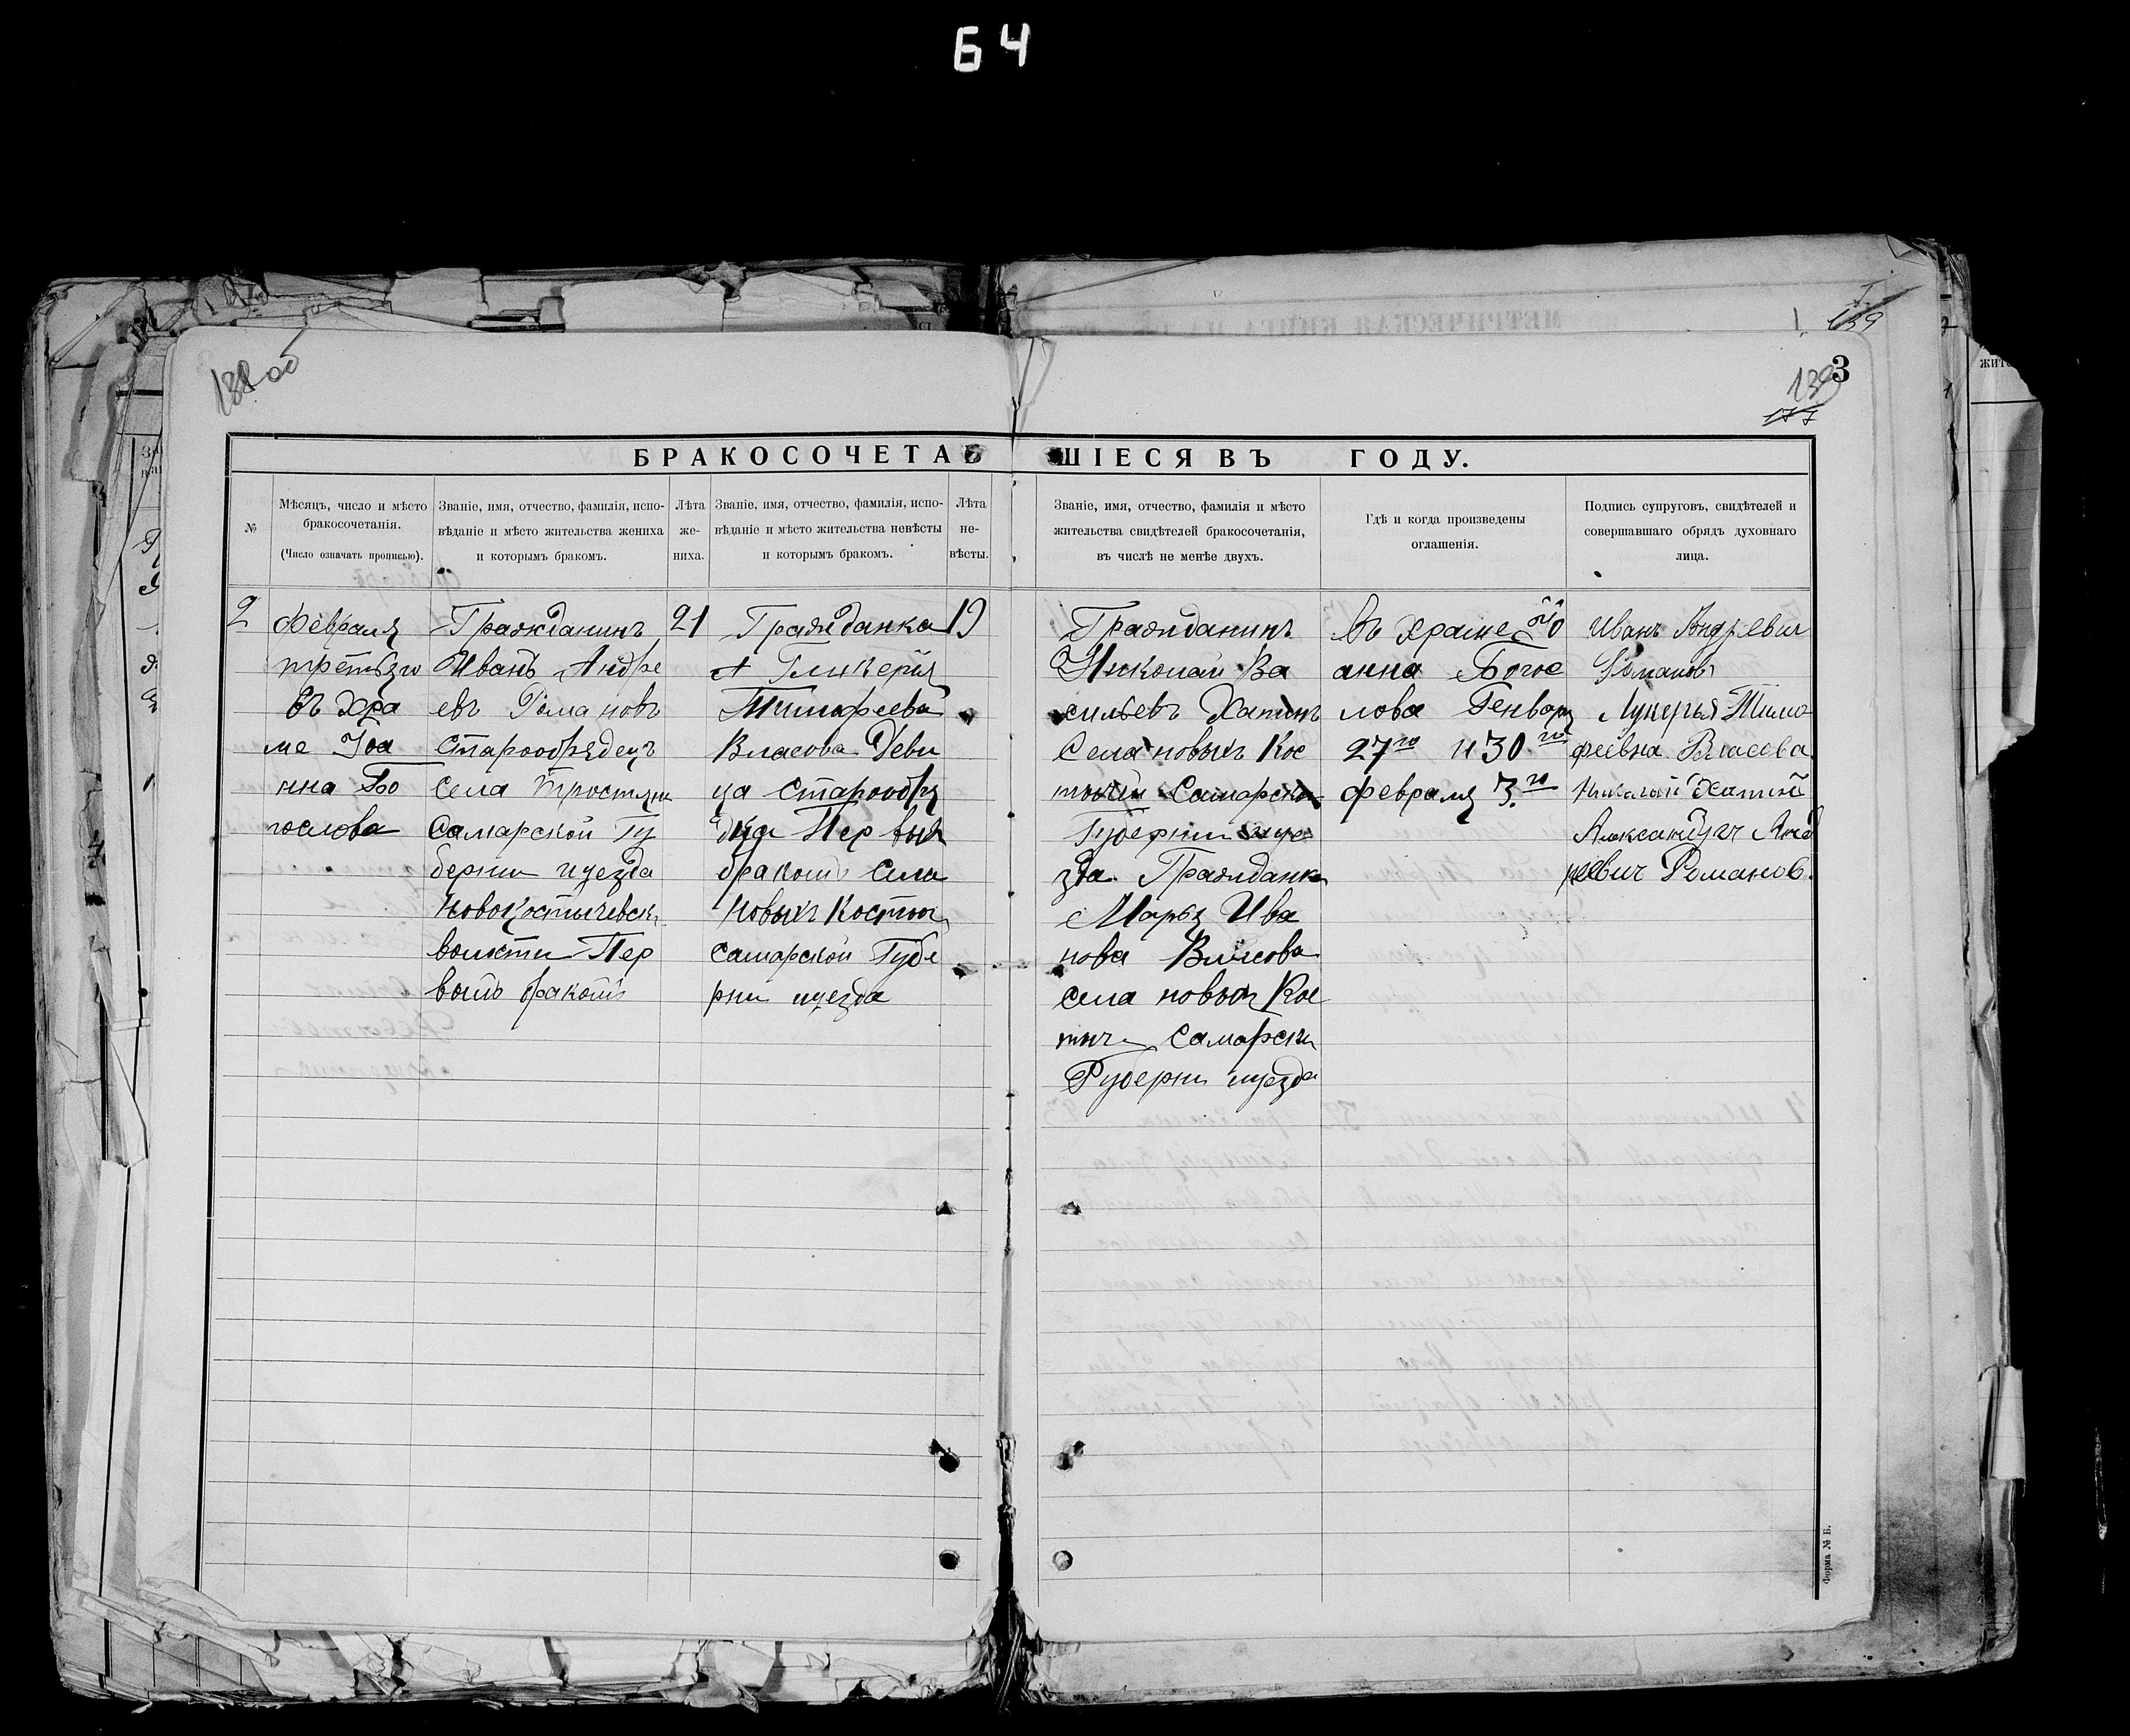 64
138 об
139
3
139
177
БРАКОСОЧЕТАВШІЕСЯ ВЪ ГОДУ.
№
Мѣсяцъ, число и мѣсто
бракосочетанія.
(Число означать прописью).
Званіе, имя, отчество, фамилія, испо-
вѣданіе и мѣсто жительства жениха
и которымъ бракомъ.
Лѣта
же-
ниха.
Званіе, имя, отчество, фамилія, испо-
вѣданіе и мѣсто жительства невѣсты
и которымъ бракомъ.
Лѣта
не-
вѣсты.
Званіе, имя, отчество, фамилія и мѣсто
жительства свидѣтелей бракосочетанія,
въ числѣ не менѣе двухъ.
Гдѣ и когда произведены
оглашенія.
Подпись супруговъ, свидѣтелей и
совершавшаго обрядъ духовнаго
лица.
2
Февраля
третьяго
въ Хра
ме Іоа
нна Бо
гослова
Гражданинъ
Иванъ Андре
евъ Романовъ
Старообрядецъ
Села Тростянк
Самарской Гу
бернии уезда
Новокостычевск
волости Пер
вымъ бракомъ
21
Гражданка
Гликерия
Тимофеева
Власова Деви
ца Старообря
дка Первым
бракомъ Села
Новыхъ Костыч
Самарской Губе
рни уезда
19
Гражданинъ
Николай Ва
сильевъ Хапинъ
Села новыхъ Кос
Самарской
Губернии уе
зда. Гражданка
Марья Ива
нова Власова
села новых Кос
тыч Самарски
Губерни уезда
Въ храме Ио
анна Богос
лова Генваря
27го и 30.го
февраля 3.го
Иванъ Андреевич
Романовъ
Лукерья Тимо
феевна Власова.
Николай Хапин
Александръ Анд
реевич Романов.
Форма № Б.